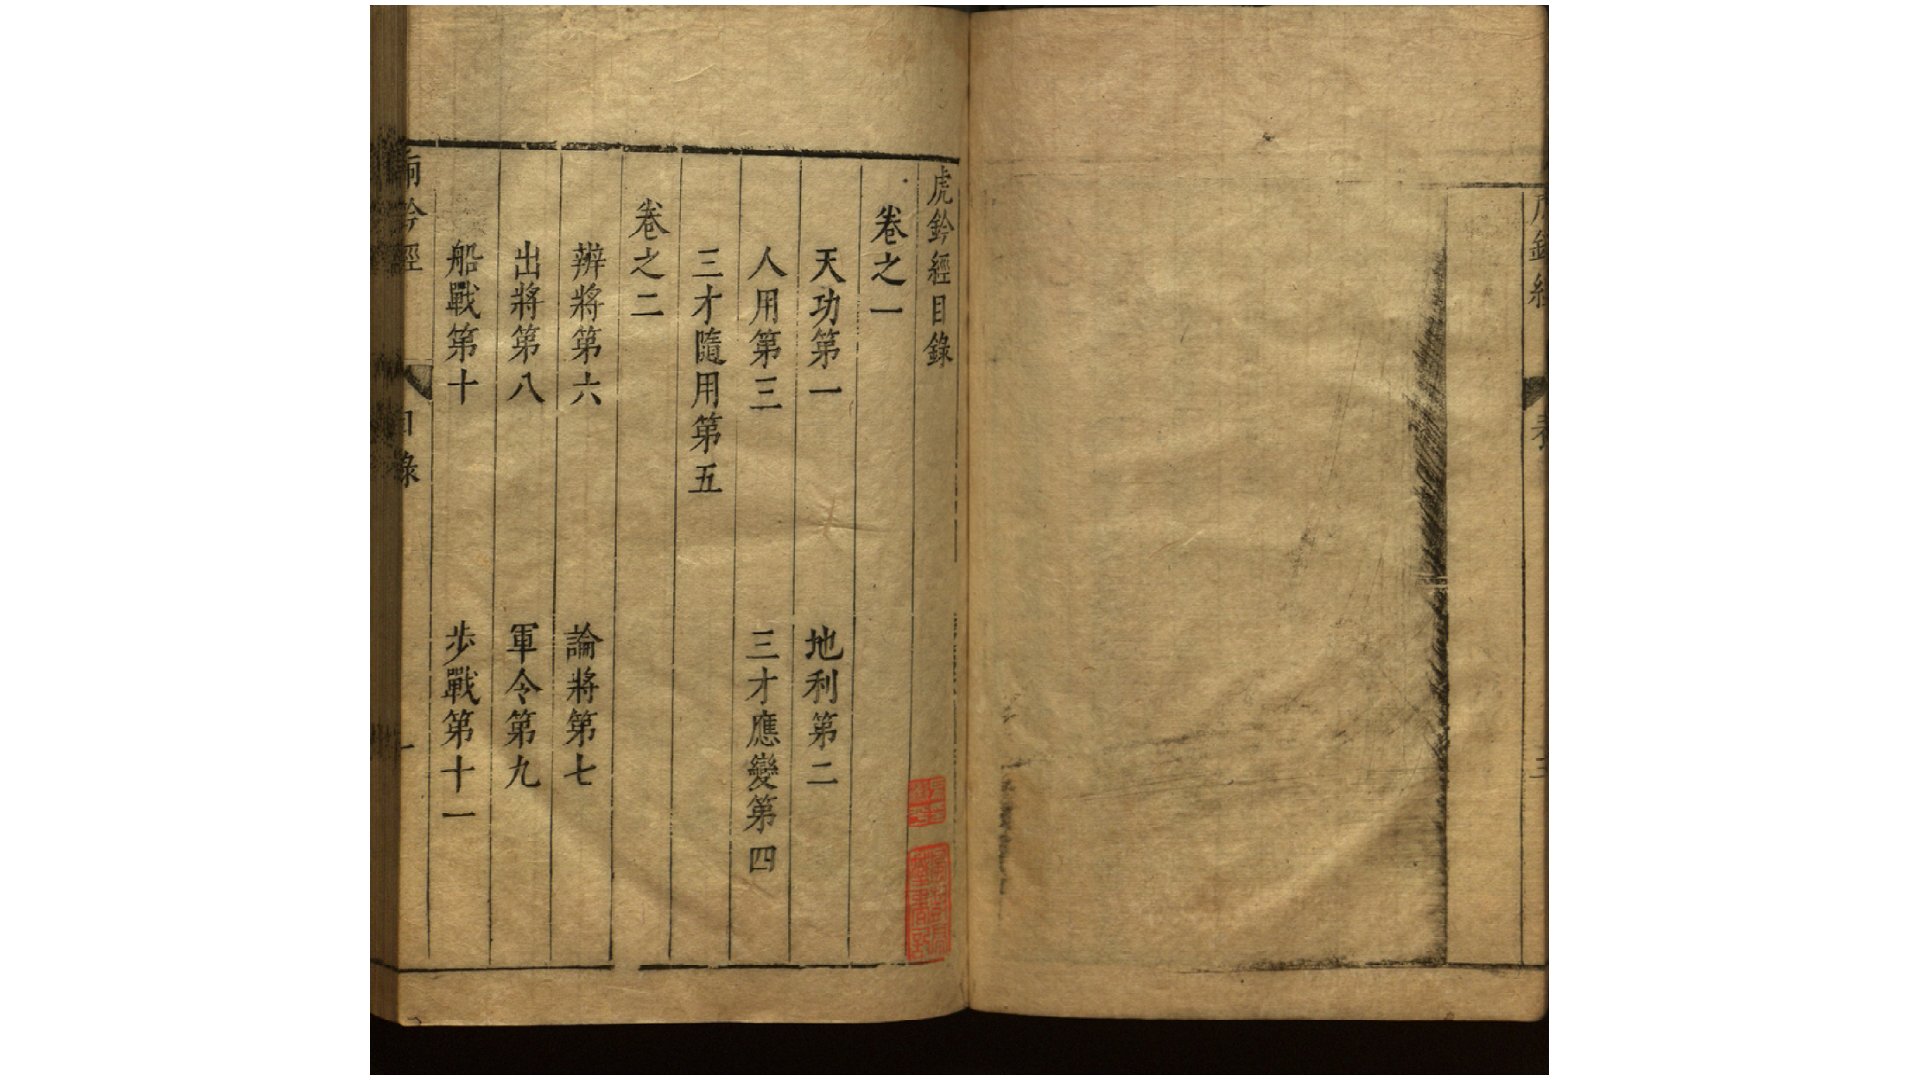 虎鈐經
虎鈐經目錄
卷之一
天功第一
地利第二
人用第三
三才應變第四
三才隨用第五
卷之二
辨將第六
論將第七
出將第八
軍令第九
船戰第十
步戰第十一
鈐經
目錄
一